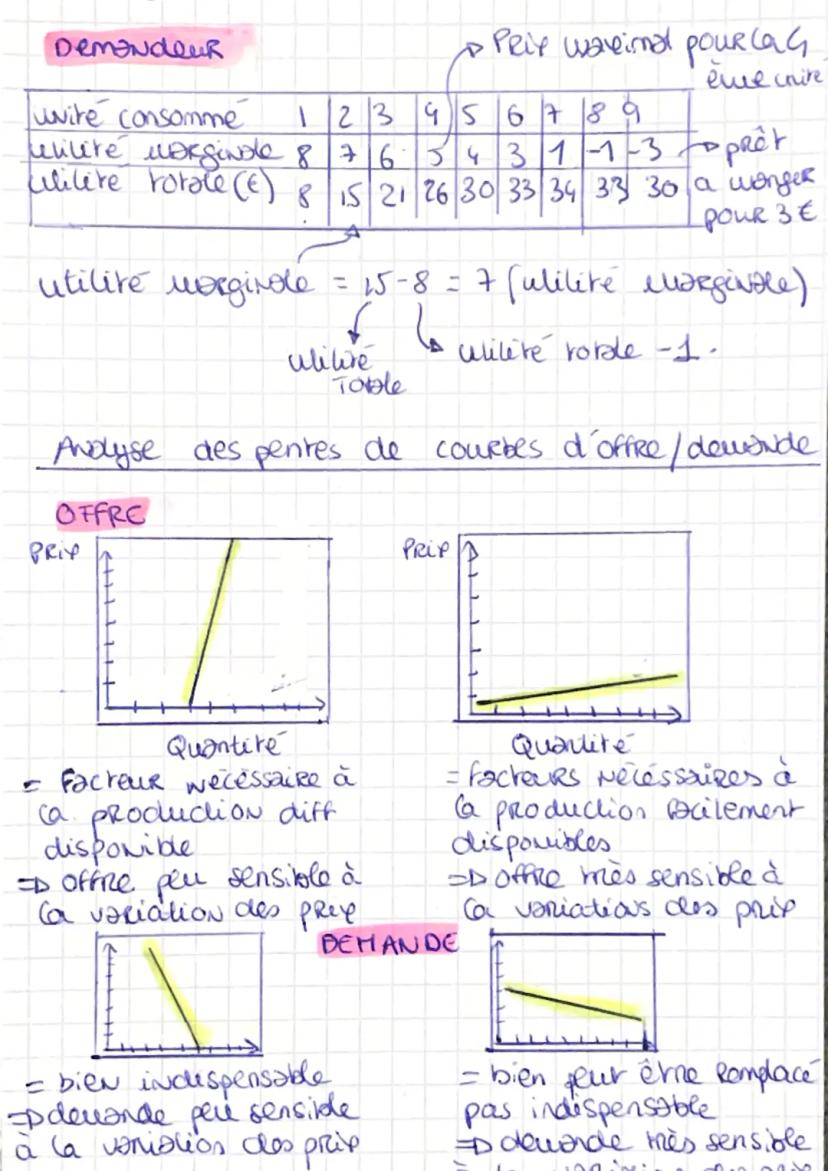 Demandeur
Prix maximal pour la 4
ème unité
unité consommé 1 2 3 4 5 6 7 8 9
utilité marginale 8 7 6 5 4 3 1 -1 -3 → prêt
utilité totale (€) 8 15 21 26 30 33 34 33 30 a manger
pour 3 €
utilité marginale = 15 - 8 = 7 (utilité marginale)
utilité
Totale
utilité totale -1.
Analyse des pentes de courbes d'offre / demande
OFFRE
Prix
Prix
Quantité
Quantité
= Facteur nécéssaire à
la production diff
disponible
=> offre peu sensible à
la variation des prix
= facteurs nécéssaires à
la production facilement
disponibles
=> offre très sensible à
la variations des prix
DEMANDE
= bien indispensable
=> demande peu sensible
à la variation des prix
= bien peut être remplacé
pas indispensable
=> demande très sensible